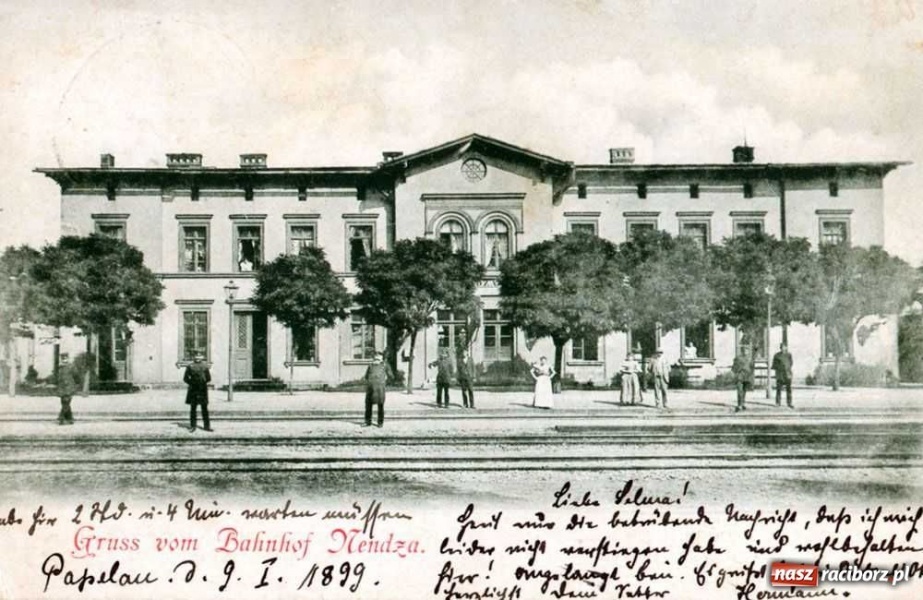 Liebe Selma!
habe hir 2 Std. u. 4 Min. warten müssen
Heut nur die betrübende Nachricht, daß ich mich
Gruss vom Bahnhof Nendza.
leider nicht verstiegen habe und wohlbehalten
hier! angelangt bin. Es
Papelau. d. 9. I. 1899.
Herzlichst Dein Vetter Hermann.
nasz raciborz.pl